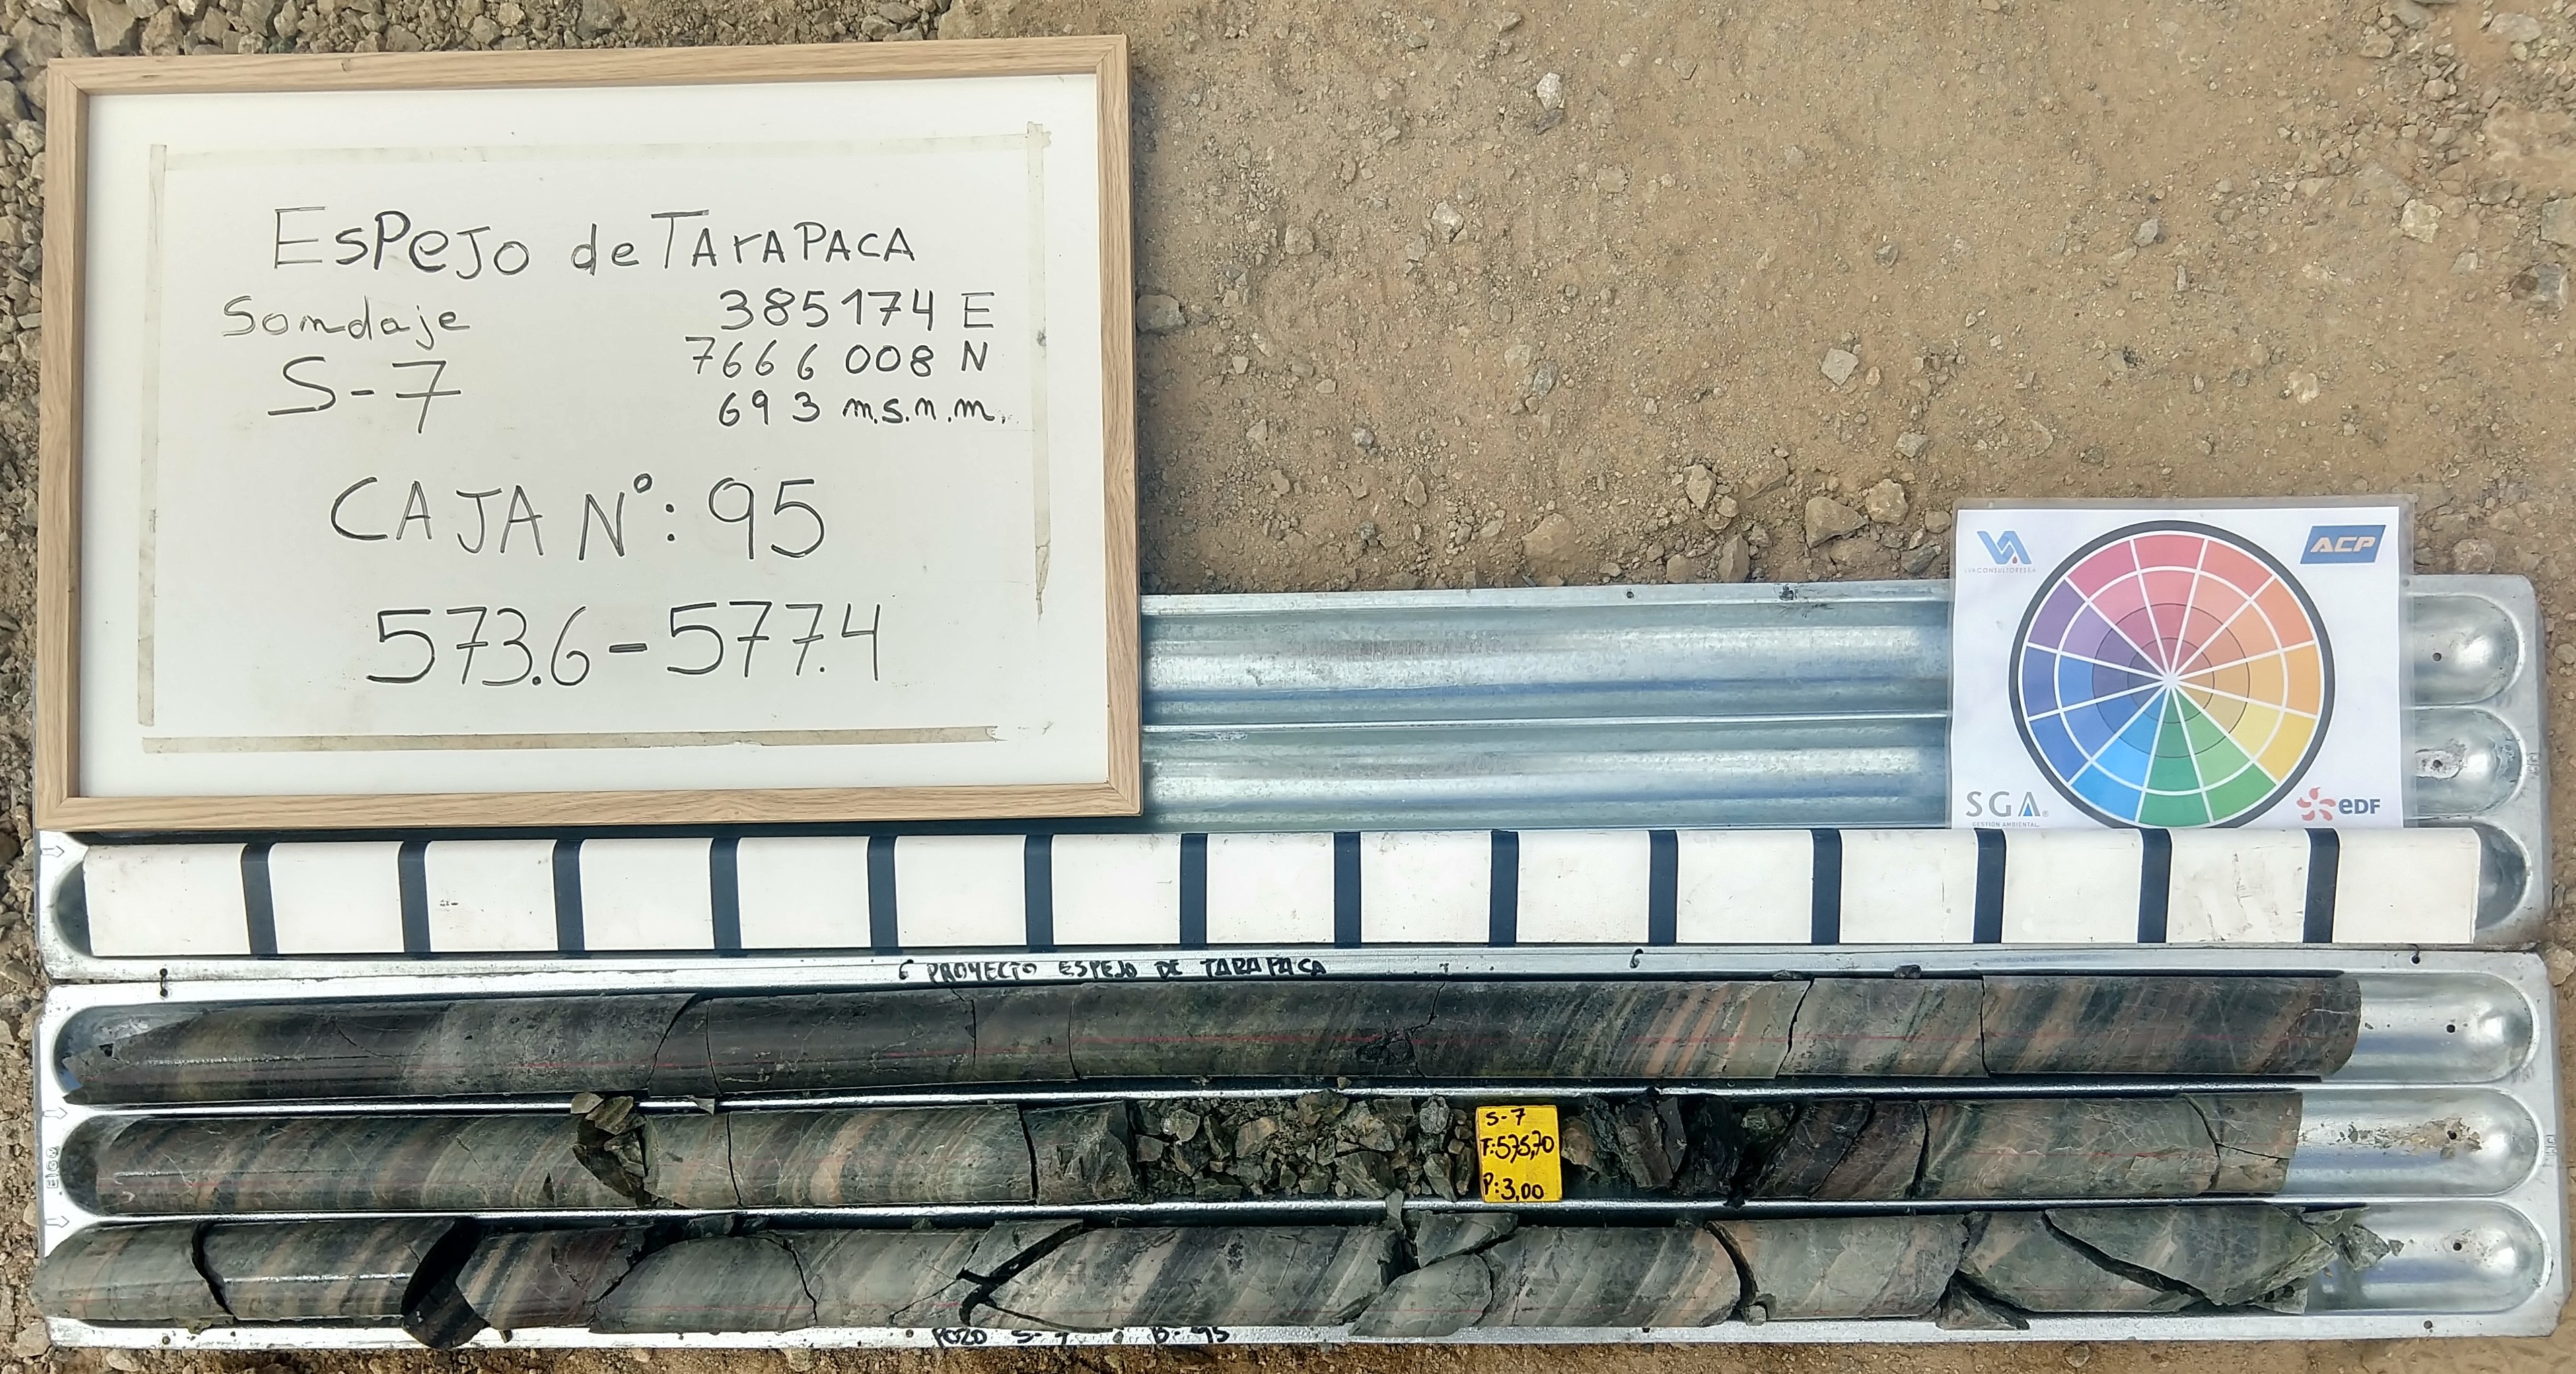 EsPeJo de TArAPACA
Sondaje
S-7
385174 E
7666 008 N
693 m.s.n.m.
CAJA N°: 95
573.6-577.4
ACP
SGA
GESTIÓN AMBIENTAL
eDF
PROYECTO ESPEJO DE TARAPACA
S-7
F:575,70
P:3,00
POZO S-7 B-95